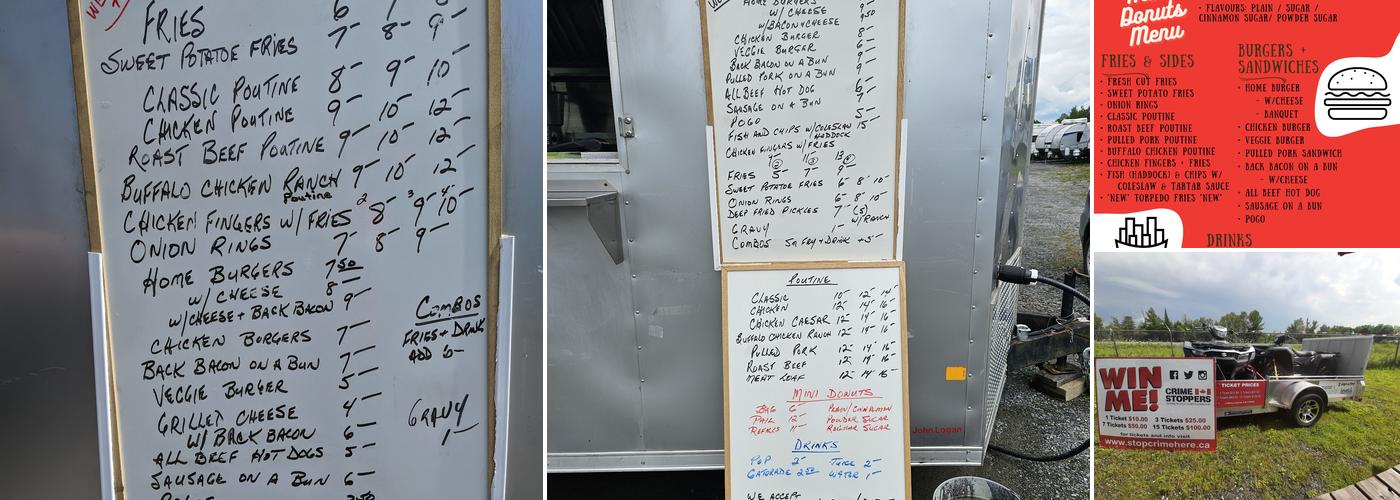 WE
FRIES 6- 7- 8-
SWEET POTATOE FRIES 7- 8- 9-
CLASSIC POUTINE 8- 9- 10-
CHICKEN POUTINE 9- 10- 12-
ROAST BEEF POUTINE 9- 10- 12-
BUFFALO CHICKEN RANCH 9- 10- 12-
Poutine
CHICKEN FINGERS W/ FRIES 2 8- 3 9- 4 10-
ONION RINGS 7- 8- 9-
HOME BURGERS 7 50
W/ CHEESE 8-
W/CHEESE + BACK BACON 9-
CHICKEN BURGERS 7-
BACK BACON ON A BUN 7-
VEGGIE BURGER 5-
GRILLED CHEESE 4-
W/ BACK BACON 6-
ALL BEEF HOT DOGS 5-
SAUSAGE ON A BUN 6-
COMBOS
FRIES + DRINK
ADD 5-
GRAVY
1-
HOME BURGERS
W/ CHEESE 9-
W/BACON+CHEESE 9 50
CHICKEN BURGER 8-
VEGGIE BURGER 6-
BACK BACON ON A BUN 9-
PULLED PORK ON A BUN 9-
ALL BEEF HOT DOG 6-
SAUSAGE ON A BUN 7-
POGO 5-
FISH AND CHIPS W/COLESLAW 15-
HADDOCK
CHICKEN FINGERS W/FRIES
FRIES 5- 7- 9-
SWEET POTATOE FRIES 6- 8- 10-
ONION RINGS 6- 8- 10-
DEEP FRIED PICKLES 7- (5)
W/RANCH
GRAVY 1-
COMBOS Sm FRY+DRINK +5-
POUTINE
CLASSIC 10- 12- 14-
CHICKEN 12- 14- 16-
CHICKEN CAESAR 12- 14- 16-
BUFFALO CHICKEN RANCH 12- 14- 16-
PULLED PORK 12- 14- 16-
ROAST BEEF 12- 14- 16-
MEAT LOAF 12- 14- 16-
MINI DONUTS
BAG 6- PLAIN/CINNAMON
PAIL 12- POWDER SUGAR
REFILLS 11- REGULAR SUGAR
DRINKS
POP 2- JUICE 2-
GATORADE 2 50 WATER 1-
WE ACCEPT
John Logan
Donuts
Menu
• FLAVOURS: PLAIN / SUGAR /
CINNAMON SUGAR/ POWDER SUGAR
FRIES & SIDES
• FRESH CUT FRIES
• SWEET POTATO FRIES
• ONION RINGS
• CLASSIC POUTINE
• ROAST BEEF POUTINE
• PULLED PORK POUTINE
• BUFFALO CHICKEN POUTINE
• CHICKEN FINGERS + FRIES
• FISH (HADDOCK) & CHIPS W/
COLESLAW & TARTAR SAUCE
• *NEW* TORPEDO FRIES *NEW*
BURGERS +
SANDWICHES
• HOME BURGER
- W/CHEESE
- BANQUET
• CHICKEN BURGER
• VEGGIE BURGER
• PULLED PORK SANDWICH
• BACK BACON ON A BUN
- W/CHEESE
• ALL BEEF HOT DOG
• SAUSAGE ON A BUN
• POGO
DRINKS
WIN
ME!
CRIME
STOPPERS
1 Ticket $10.00 3 Tickets $25.00
7 Tickets $50.00 15 Tickets $100.00
for tickets and info visit
www.stopcrimehere.ca
TICKET PRICES